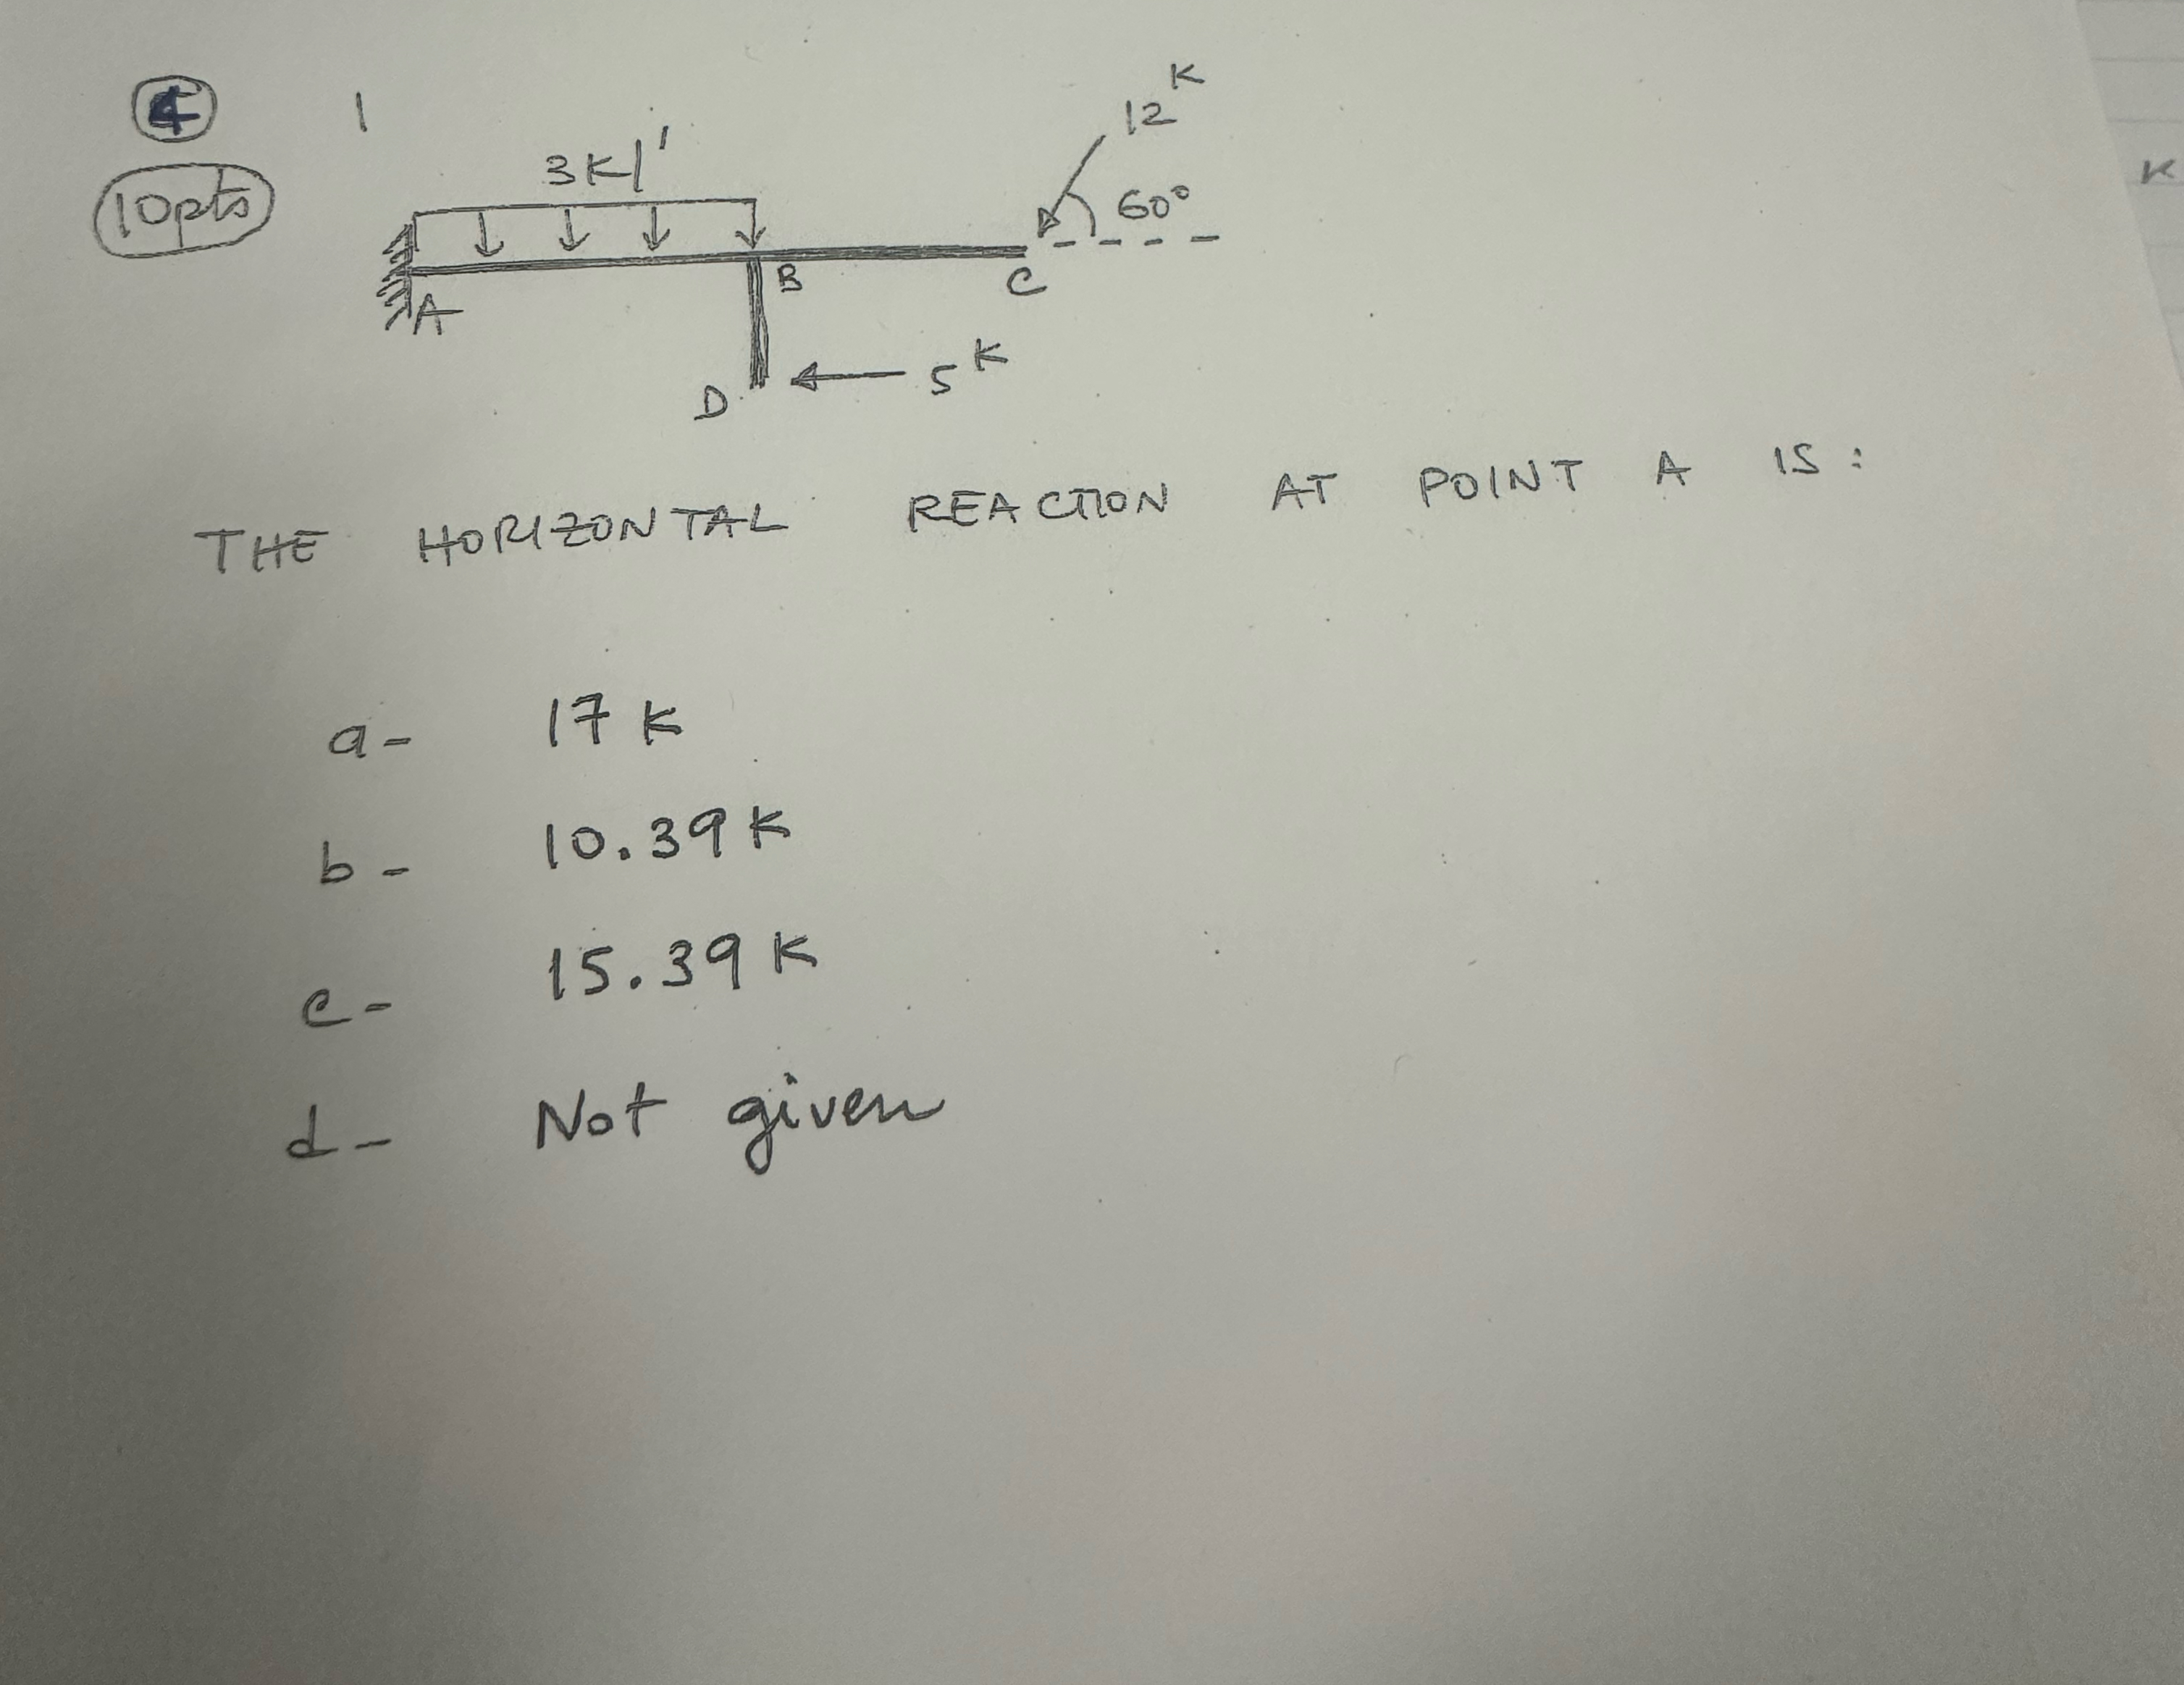 4 1
10pts
12 K
3K/'
60°
B
C
A
5 K
D
K
THE HORIZONTAL REACTION AT POINT A IS:
a- 17 K
b- 10.39 K
c- 15.39 K
d- Not given